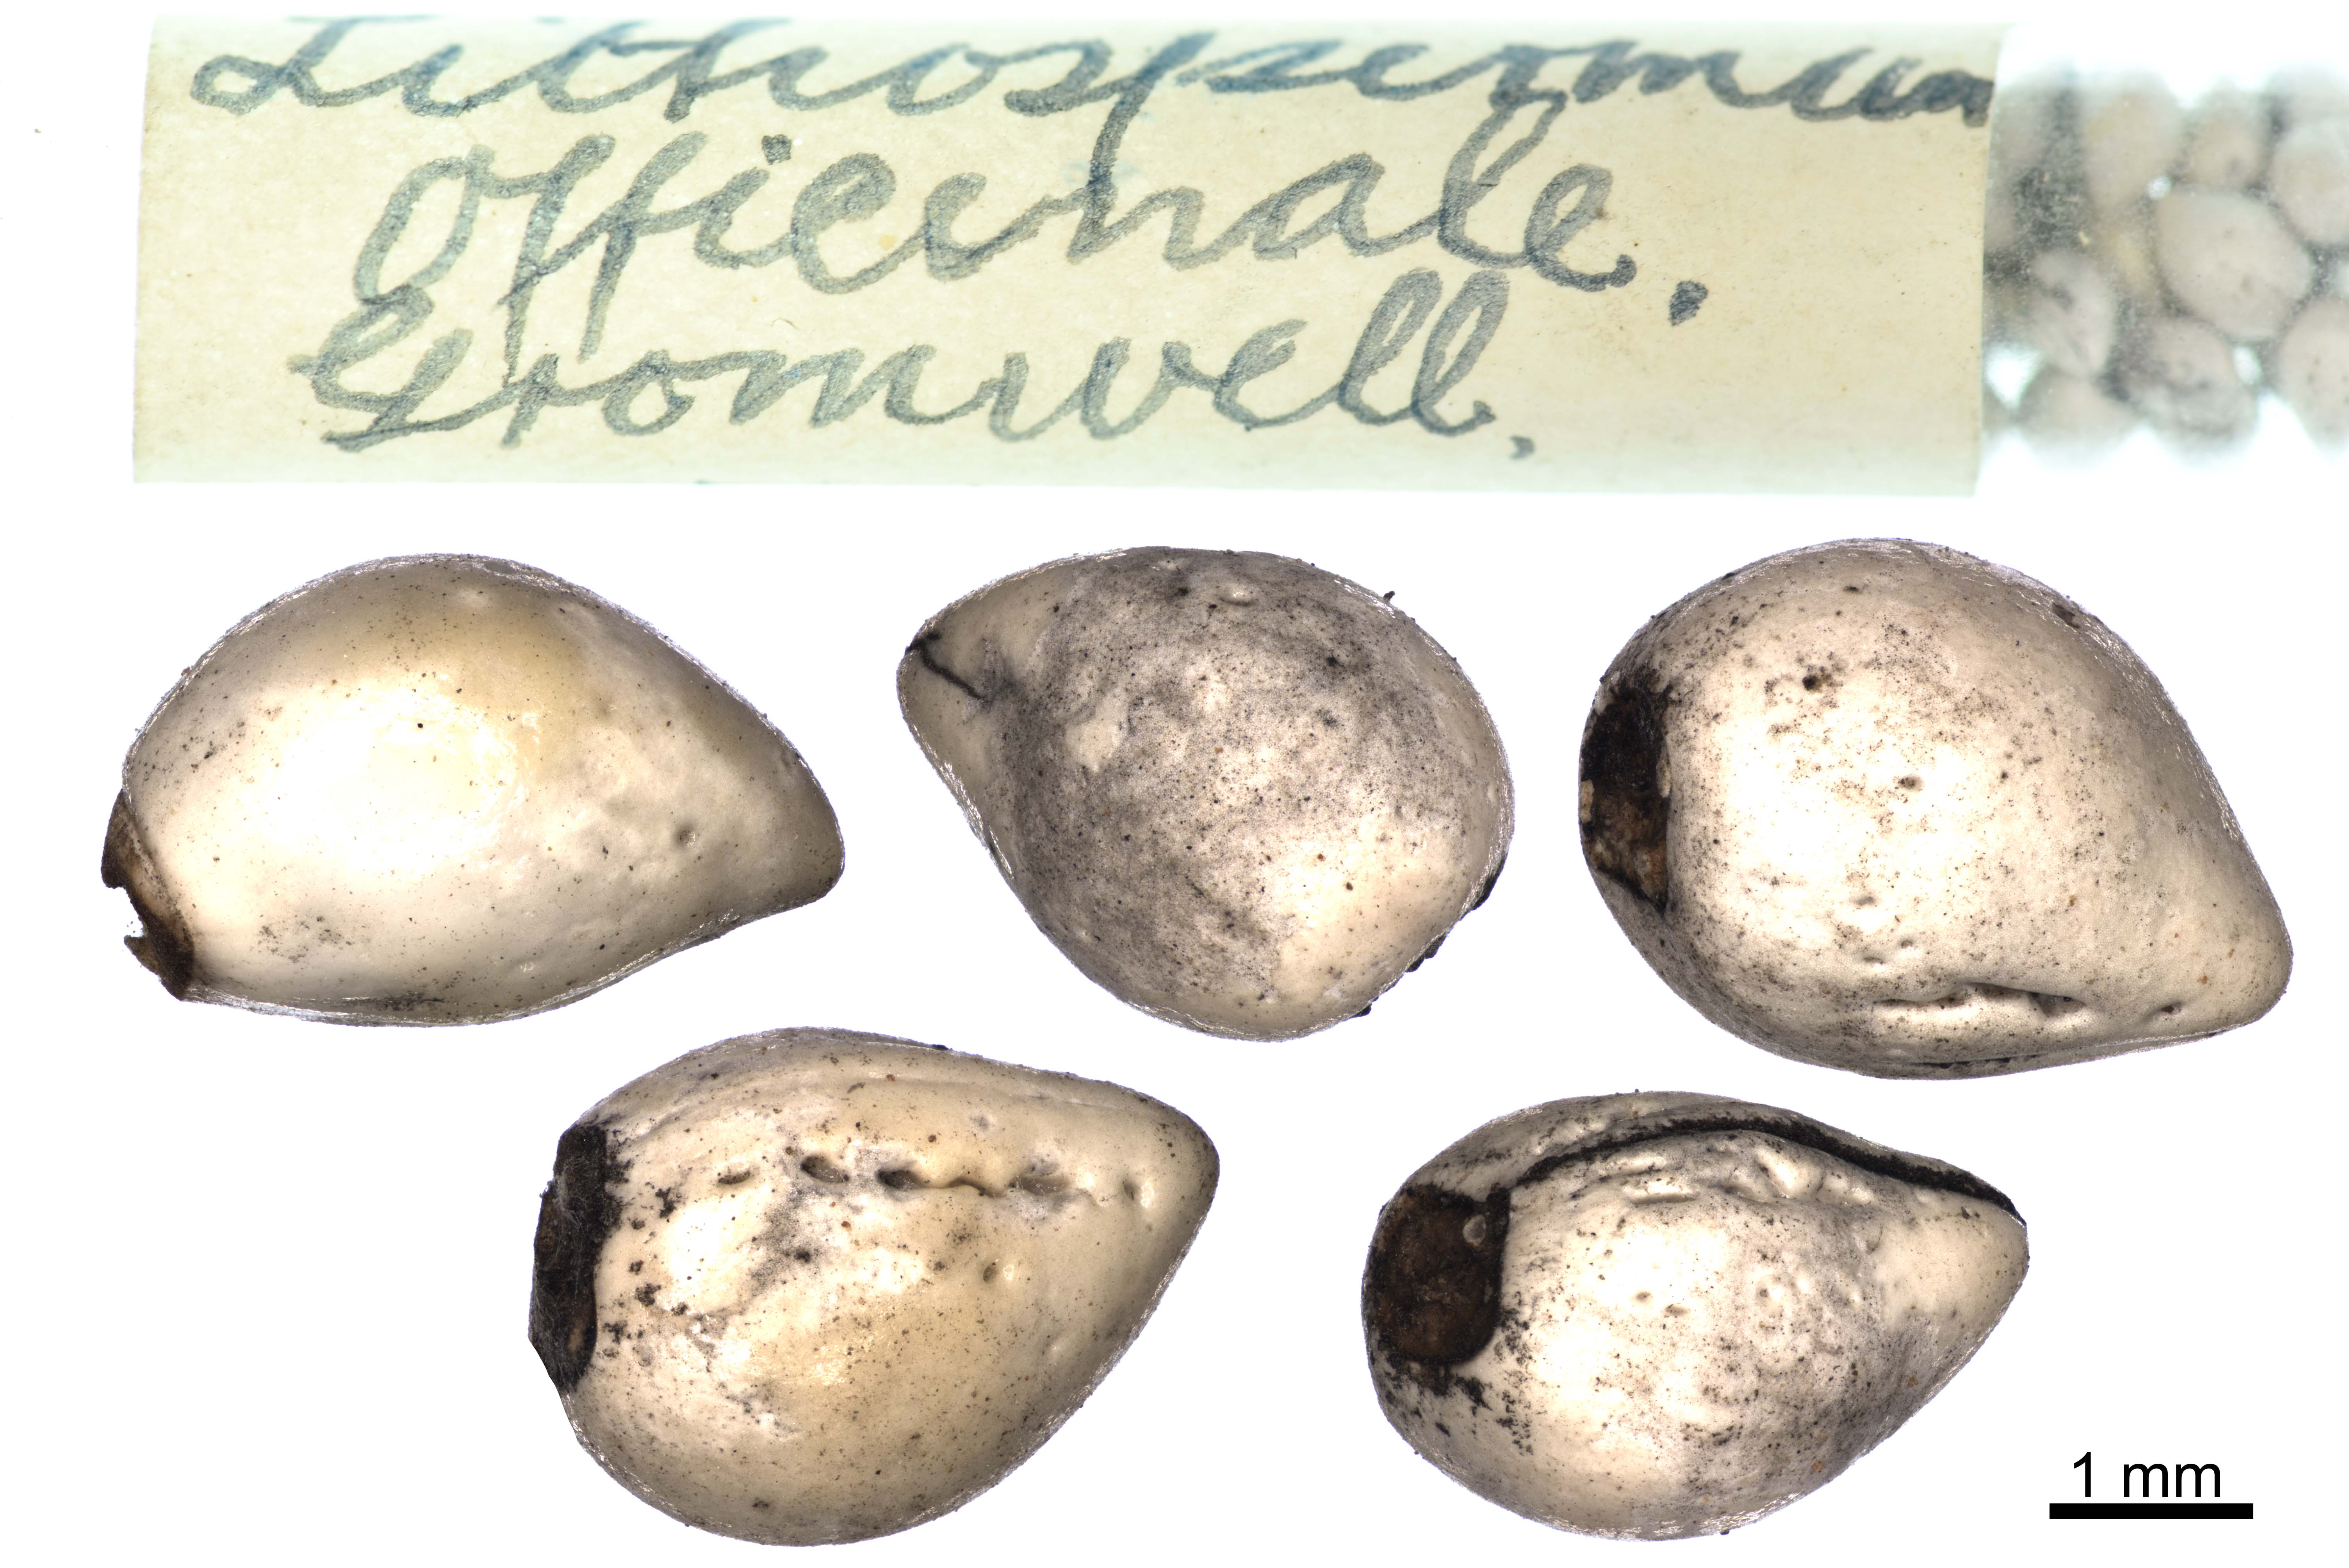 Lithospermum
Officinale.
Gromwell.
1 mm